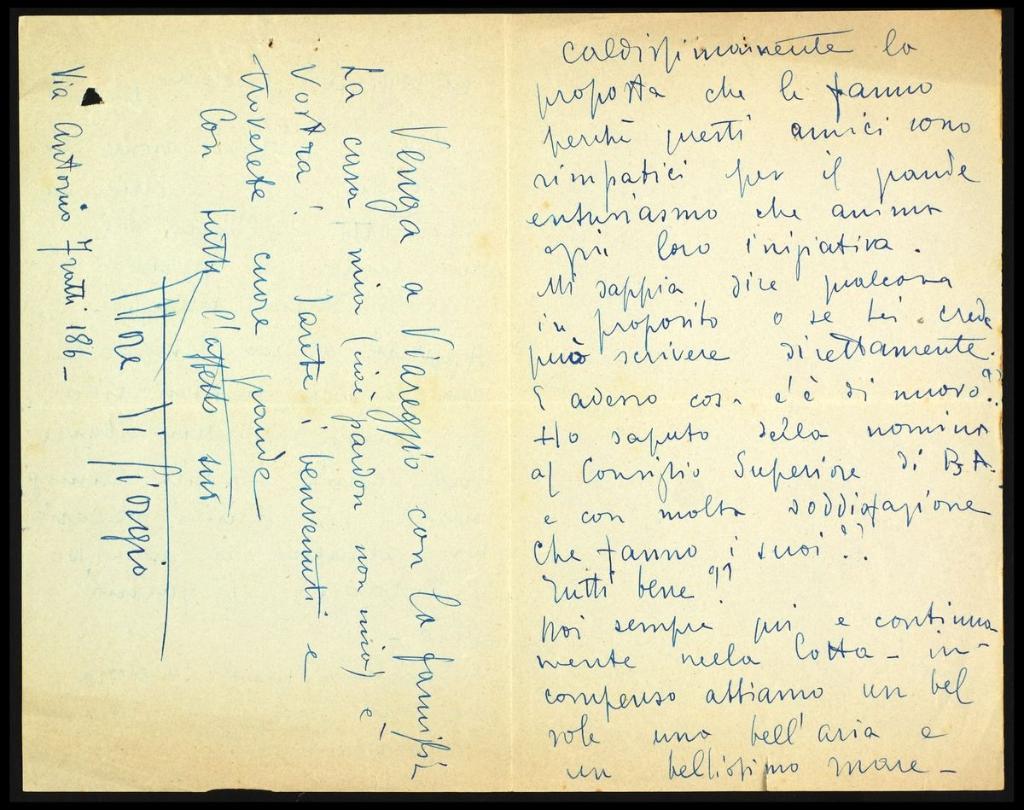 caldissimamente la
proposta che le fanno
perchè questi amici sono
simpatici per il grande
entusiasmo che anima
ogni loro iniziativa.
Mi sappia dire qualcosa
in proposito o se Lei crede
può scrivere direttamente.
E adesso cosa c'è di nuovo??
Ho saputo della nomina
al Consiglio Superiore di B.A.
e con molta soddisfazione
che fanno i suoi??
Tutti bene??
Noi sempre più e continua
mente nella lotta - in
compenso abbiamo un bel
sole una bell'aria e
un bellissimo mare -
Venga a Viareggio con la famiglia
La casa mia (cioè pardon non mia) è
Vostra! Sarete i benvenuti e
troverete cuore grande
Con tutto l'affetto suo
Via Antonio Fratti 186 -